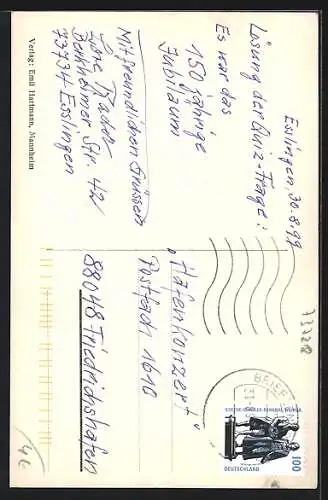 Esslingen, 30.8.99
Losung der Quiz-Frage:
Es war das
150 jährige
Jubiläum
Mit freundlichen Grüssen
Lore Bader
Berkheimer Str. 42
73734-Esslingen
Verlag: Emil Hartmann, Mannheim
"Hafenkonzert"
Postfach 1610
88048-Friedrichshafen
BRIEF
GOETHE-SCHILLER-DENKMAL WEIMAR
100
DEUTSCHLAND